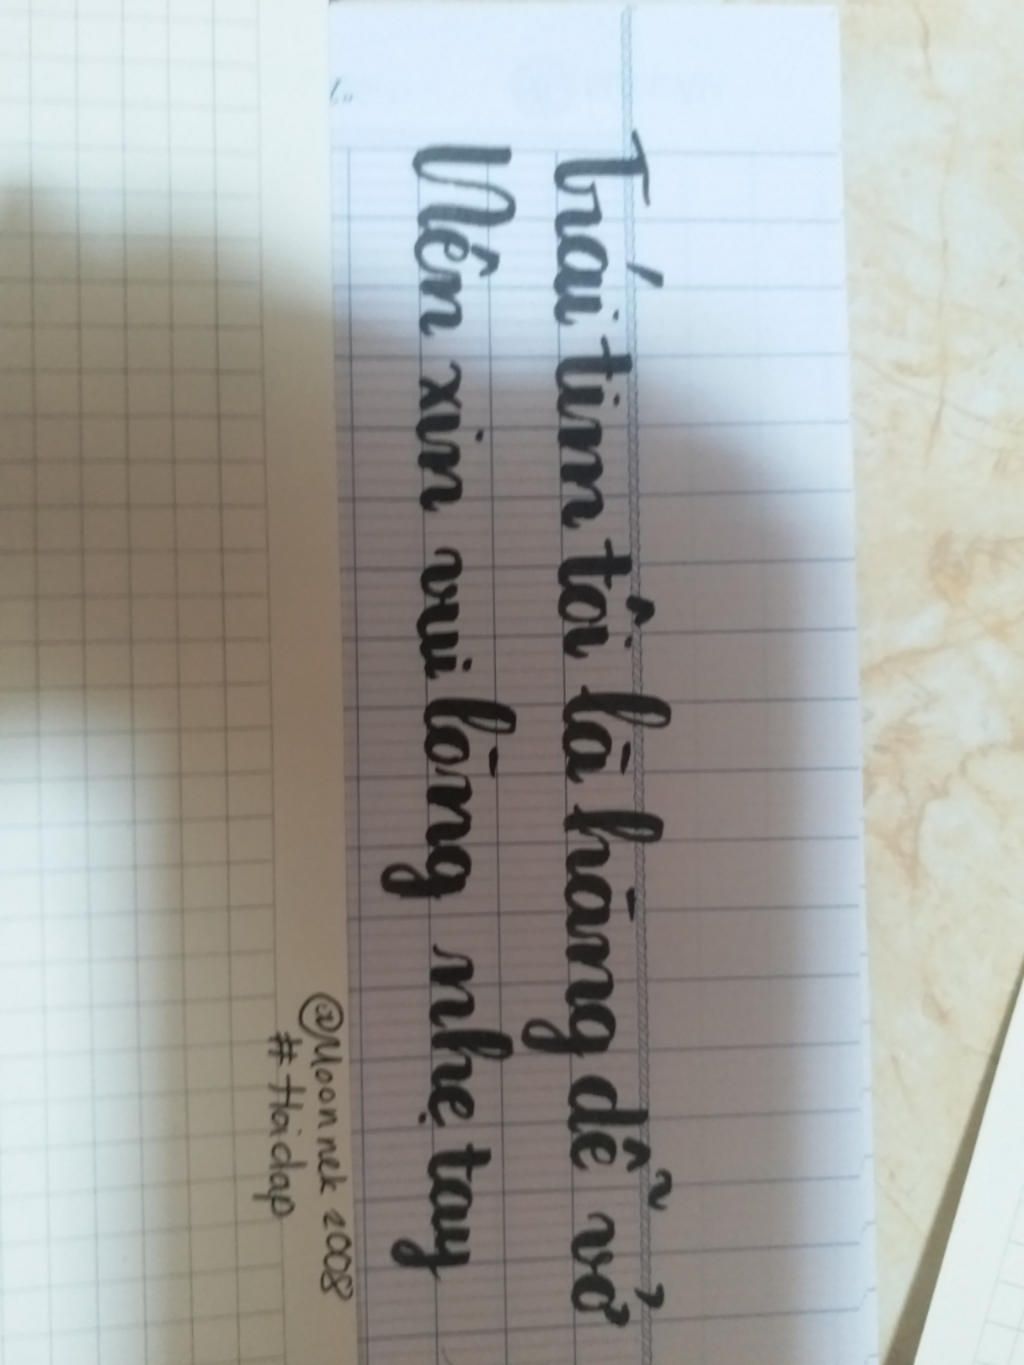 Trái tim tôi là hàng dễ vở
Nên xin vui lòng nhẹ tay
@Moonnek 2008
#Hoidap